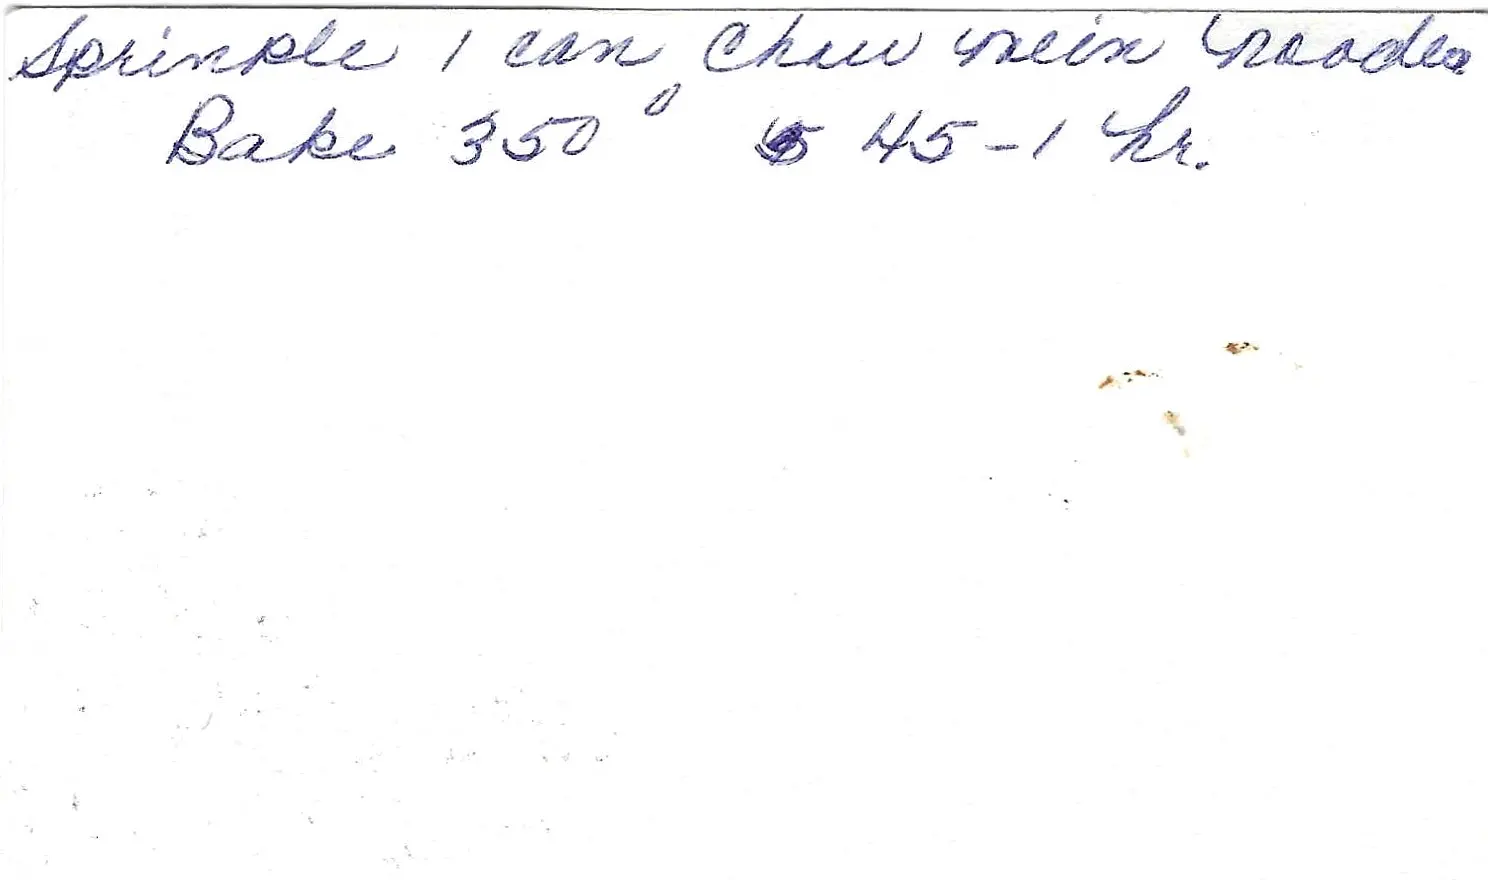 Sprinkle 1 can Chow mein noodles
Bake 350° 45-1 hr.